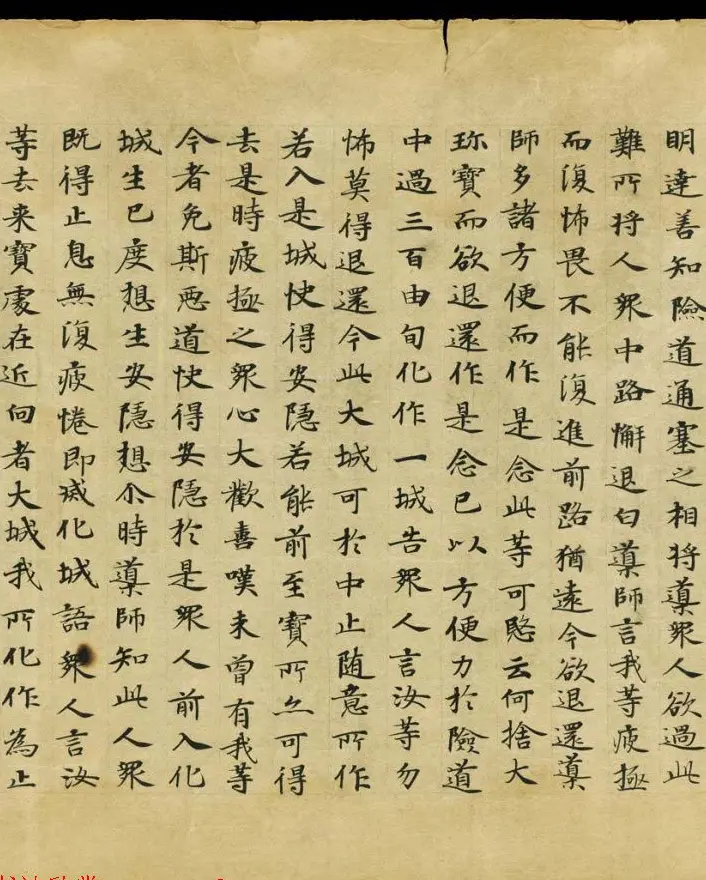 明達善知險道通塞之相將導衆人欲過此
難所將人衆中路懈退白導師言我等疲極
而復怖畏不能復進前路猶遠今欲退還導
師多諸方便而作是念此等可愍云何捨大
珎寶而欲退還作是念已以方便力於險道
中過三百由旬化作一城告衆人言汝等勿
怖莫得退還今此大城可於中止随意所作
若入是城快得安隱若能前至寶所亦可得
去是時疲極之衆心大歡喜嘆未曾有我等
今者免斯惡道快得安隱於是衆人前入化
城生已度想生安隱想尒時導師知此人衆
既得止息無復疲惓即滅化城語衆人言汝
等去来寶處在近向者大城我所化作為止